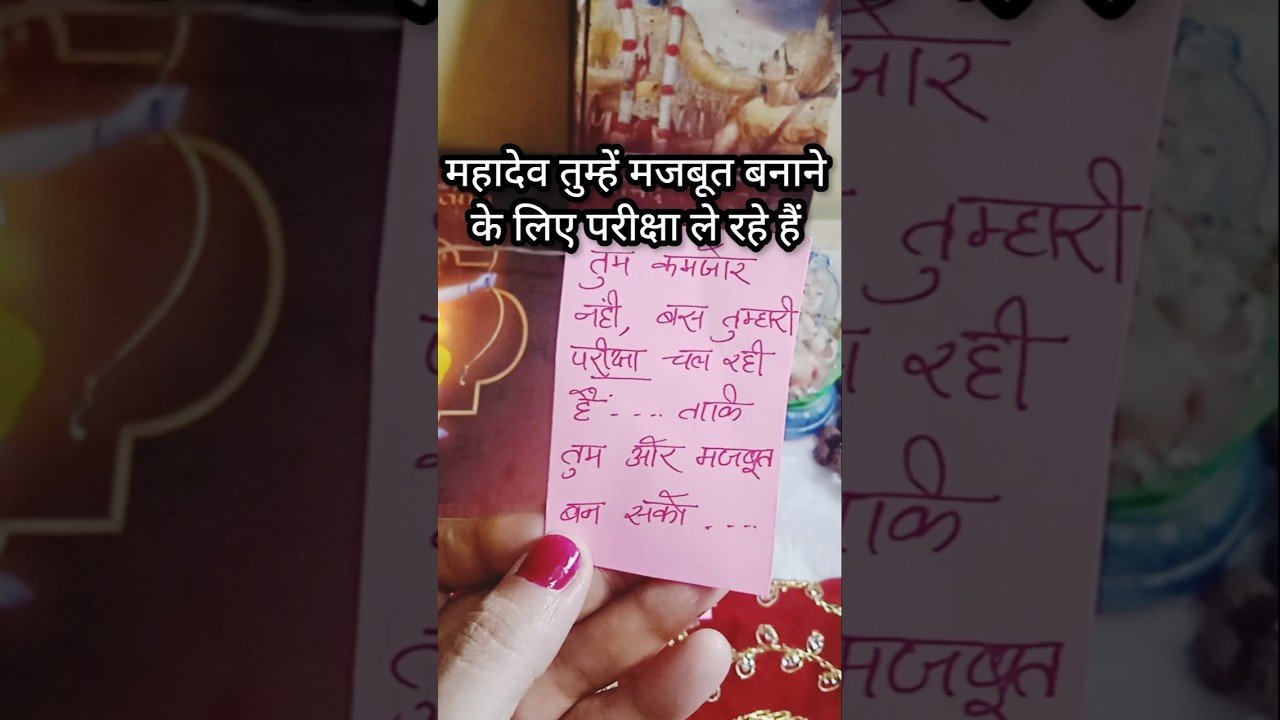 महादेव तुम्हें मजबूत बनाने
के लिए परीक्षा ले रहे हैं
तुम कमजोर
नही, बस तुम्हारी
परीक्षा चल रही
हैं.... ताकि
तुम और मजबूत
बन सको ....
जोर
तुम्हारी
रही
मजबूत